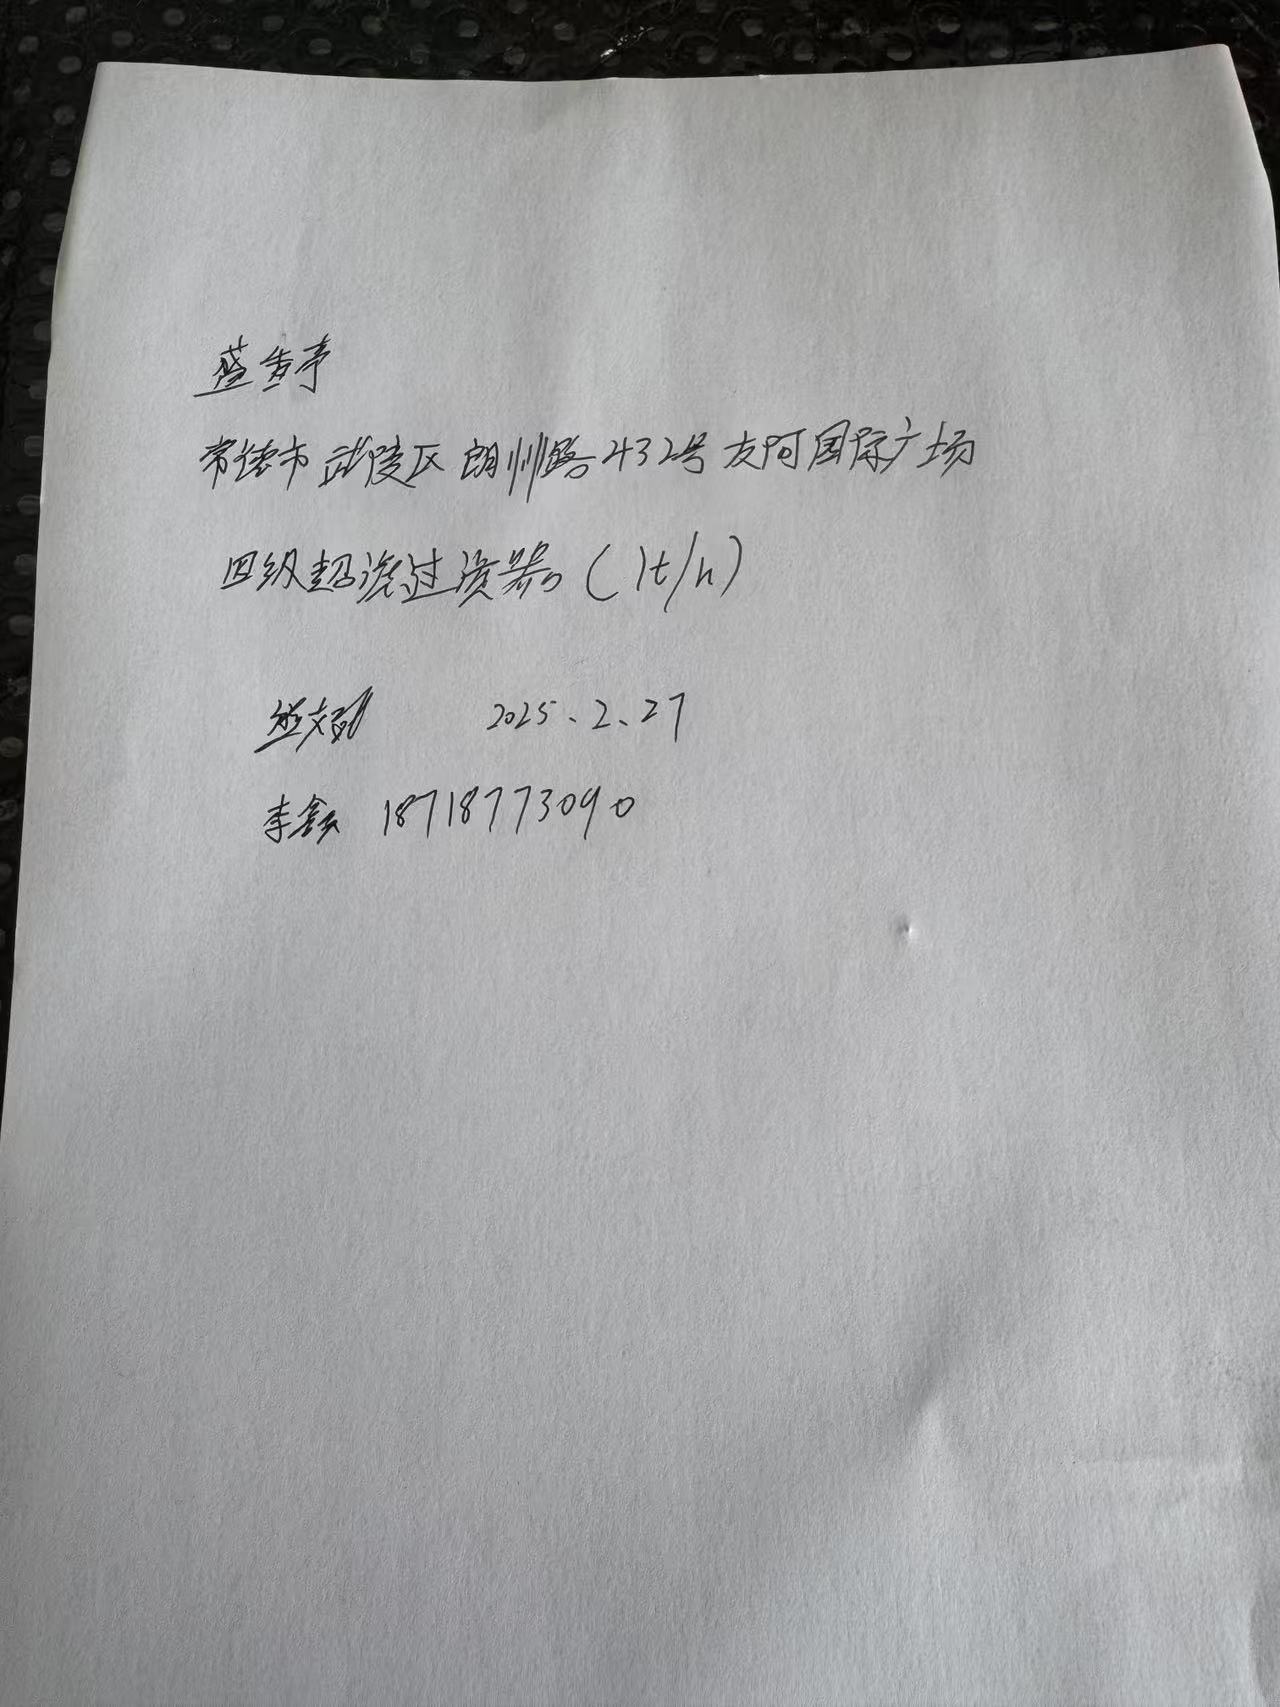 常德市武陵区朗州路432号友阿国际广场
四级超滤过滤器(1t/h)
2025、2、27
李鑫 18718773090